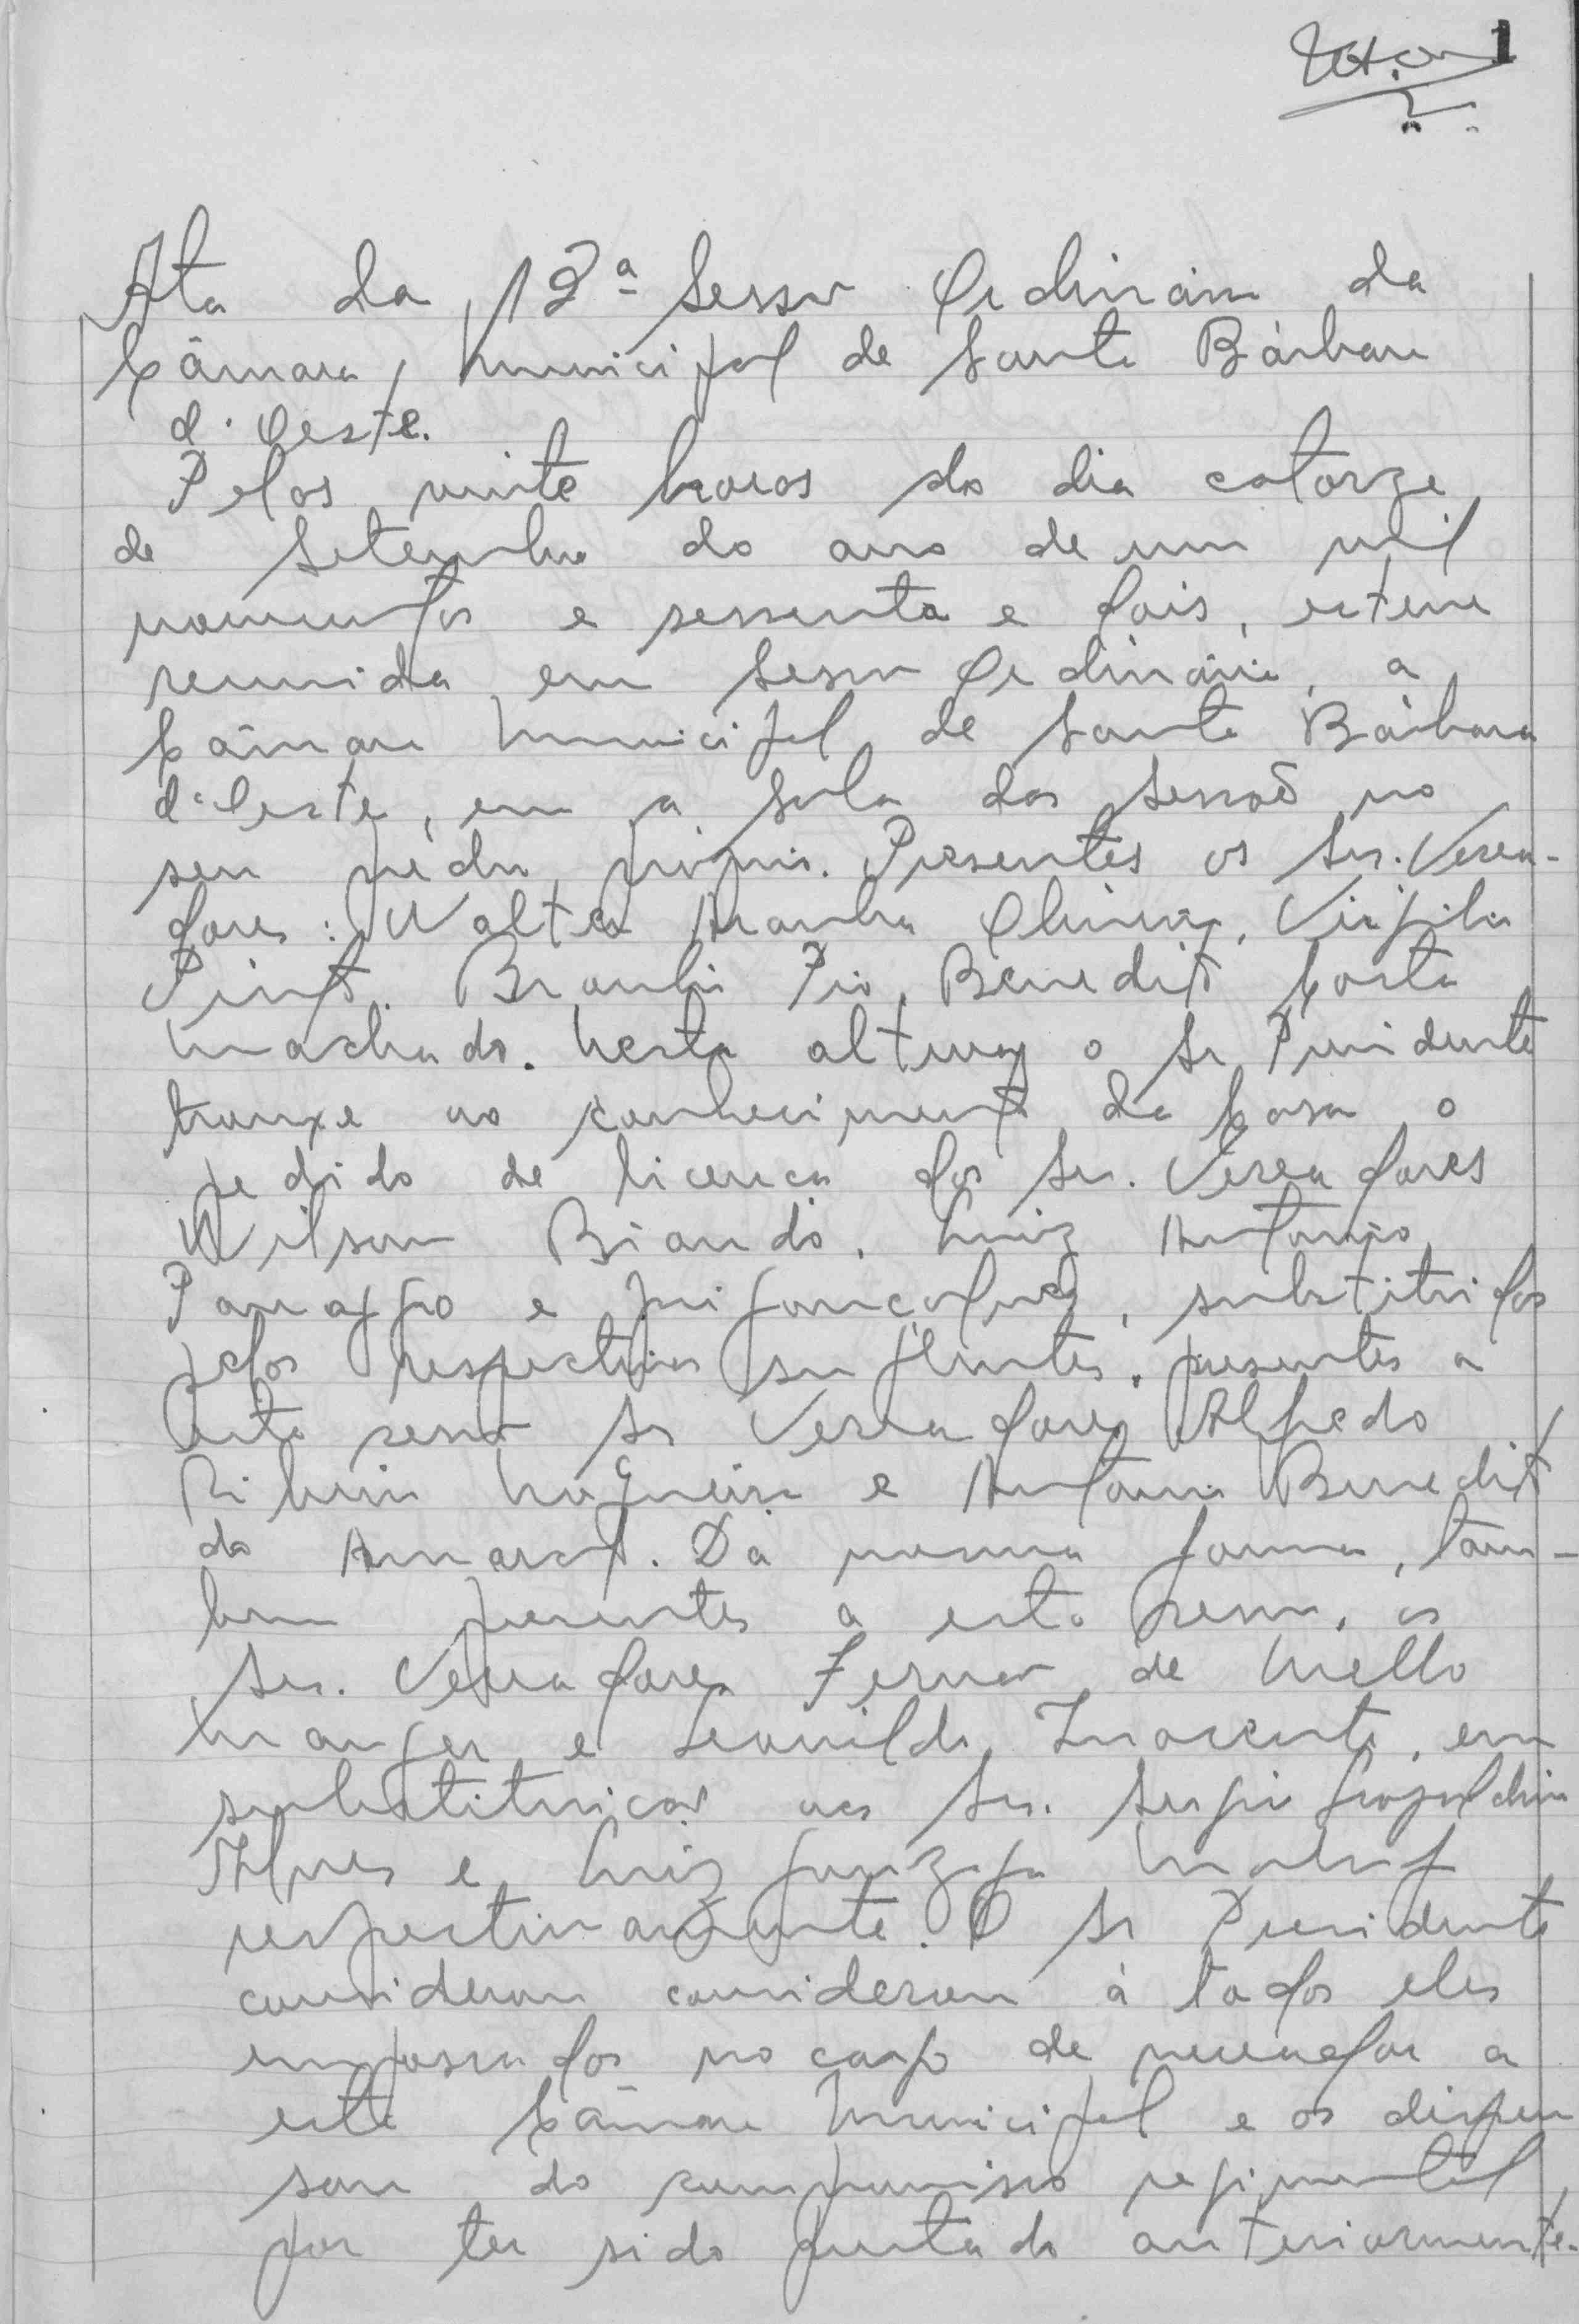 1
Ata da 12ª Sessão Ordinária da
Câmara Municipal de Santa Bárbara
d'Oeste.
Pelos vinte horas do dia catorze
de Setembro do ano de um mil
novecentos e sessenta e dois, esteve
reunida em Sessão Ordinária, a
Câmara Municipal de Santa Bárbara
d'Oeste, em a sala das Sessões no
seu prédio próprio. Presentes os Srs. Verea-
dores: Walter Oliveira, Virgilio
Pinto. Braulio Pio, Benedito Costa
Machado. Nesta altura o Sr Presidente
trouxe ao conhecimento da Casa o
pedido de licença dos Srs. Vereadores
Wilson Biando. Luiz Antonio
Panaggio e, substituidos
pelos respectivos suplentes, presentes a
esta sessão Sr Vereadores Alfredo
Ribeiro Nogueira e Antonio Benedito
do Amaral. Da mesma forma, tam-
bem presentes a esta sessão, os
Srs. Vereadores de Mello
e Leonildo Inocente, em
substituição aos Srs. Sergio
Alves e Luiz Gonzaga
respectivamente. O Sr Presidente
considerou considerou à todos eles
empossados no cargo de vereador a
esta Câmara Municipal e os dispen
sou do compromisso regimental
por ter sido prestado anteriormente.